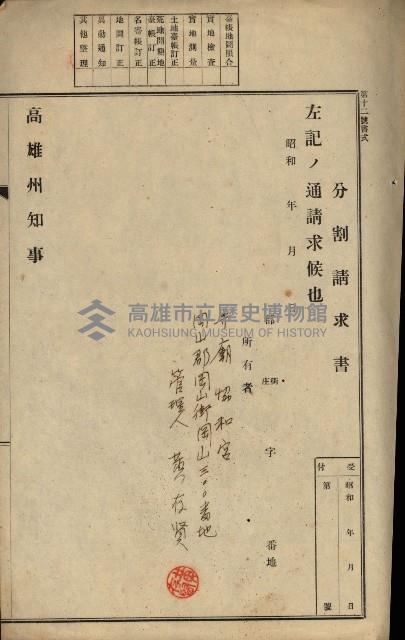 第十二號書式
臺帳地圖照合
實地檢查
實地測量
土地臺帳訂正
名寄帳訂正
地圖訂正
異動通知
其他整理
分割請求書
左記ノ通請求候也
昭和 年 月
郡 街庄 字 番地
所有者
寺廟 協和宮
岡山郡岡山街岡山三〇〇番地
管理人 黃存賢
高雄州知事
受付
昭和 年 月 日
第 號
高雄市立歷史博物館
KAOHSIUNG MUSEUM OF HISTORY